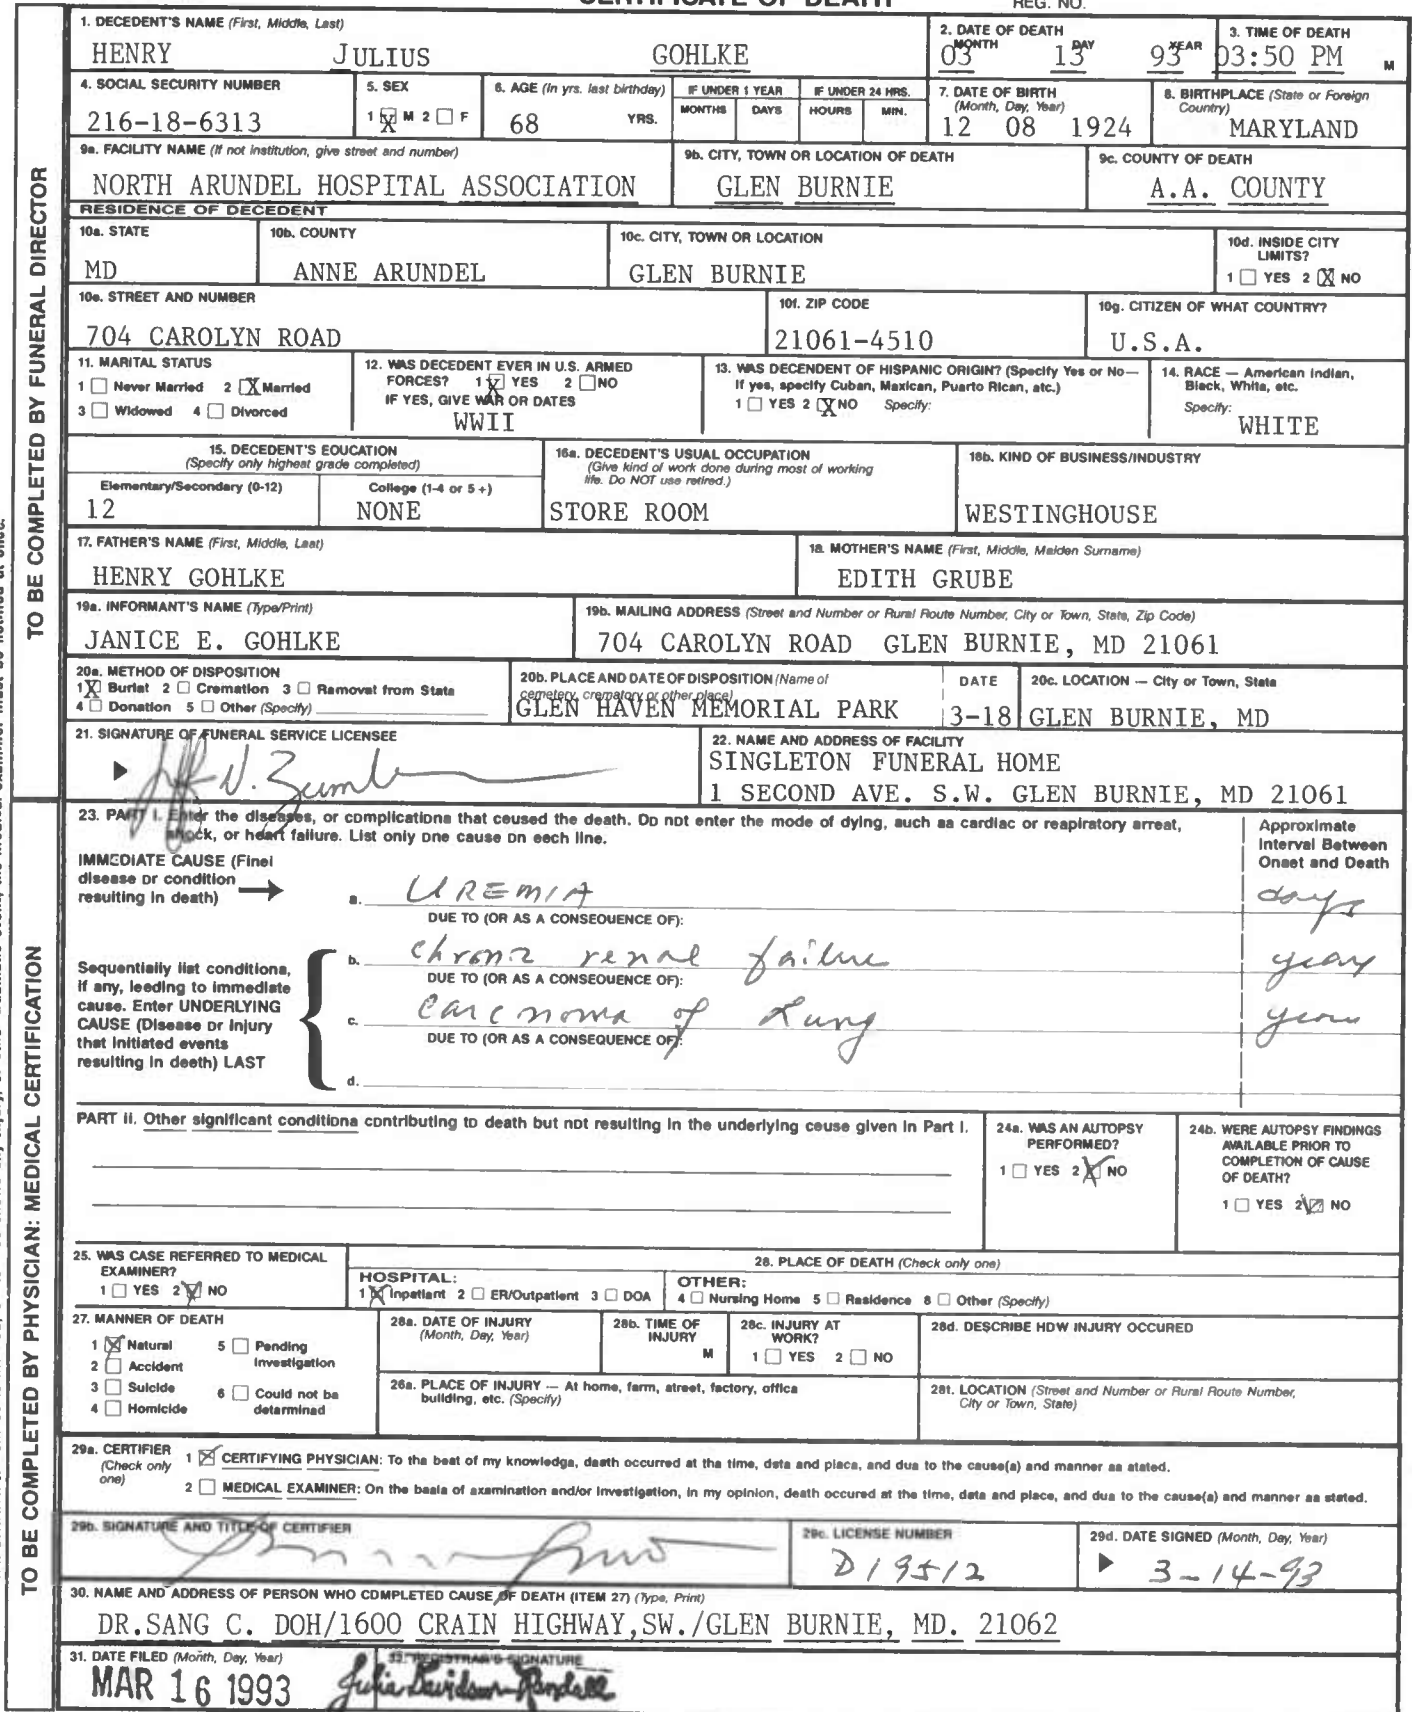 CERTIFICATE OF DEATH
REG. NO.
1. DECEDENT'S NAME (First, Middle, Last)
HENRY JULIUS GOHLKE
2. DATE OF DEATH
MONTH DAY YEAR
03 13 93
3. TIME OF DEATH
03:50 PM M
4. SOCIAL SECURITY NUMBER
216-18-6313
5. SEX
1 X M 2 F
6. AGE (In yrs. last birthday)
68 YRS.
IF UNDER 1 YEAR
MONTHS DAYS
IF UNDER 24 HRS.
HOURS MIN.
7. DATE OF BIRTH
(Month, Day, Year)
12 08 1924
8. BIRTHPLACE (State or Foreign
Country)
MARYLAND
9a. FACILITY NAME (If not institution, give street and number)
NORTH ARUNDEL HOSPITAL ASSOCIATION
9b. CITY, TOWN OR LOCATION OF DEATH
GLEN BURNIE
9c. COUNTY OF DEATH
A.A. COUNTY
RESIDENCE OF DECEDENT
10a. STATE
MD
10b. COUNTY
ANNE ARUNDEL
10c. CITY, TOWN OR LOCATION
GLEN BURNIE
10d. INSIDE CITY
LIMITS?
1 YES 2 X NO
10e. STREET AND NUMBER
704 CAROLYN ROAD
10f. ZIP CODE
21061-4510
10g. CITIZEN OF WHAT COUNTRY?
U.S.A.
11. MARITAL STATUS
1 Never Married 2 X Married
3 Widowed 4 Divorced
12. WAS DECEDENT EVER IN U.S. ARMED
FORCES? 1 X YES 2 NO
IF YES, GIVE WAR OR DATES
WWII
13. WAS DECENDENT OF HISPANIC ORIGIN? (Specify Yes or No—
If yes, specify Cuban, Maxican, Puarto Rican, atc.)
1 YES 2 X NO Specify:
14. RACE — American Indian,
Black, White, etc.
Specify:
WHITE
15. DECEDENT'S EDUCATION
(Specify only highest grade completed)
Elementary/Secondary (0-12)
12
College (1-4 or 5+)
NONE
16a. DECEDENT'S USUAL OCCUPATION
(Give kind of work done during most of working
life. Do NOT use retired.)
STORE ROOM
16b. KIND OF BUSINESS/INDUSTRY
WESTINGHOUSE
17. FATHER'S NAME (First, Middle, Last)
HENRY GOHLKE
18. MOTHER'S NAME (First, Middle, Maiden Surname)
EDITH GRUBE
19a. INFORMANT'S NAME (Type/Print)
JANICE E. GOHLKE
19b. MAILING ADDRESS (Street and Number or Rural Route Number, City or Town, State, Zip Code)
704 CAROLYN ROAD GLEN BURNIE, MD 21061
20a. METHOD OF DISPOSITION
1 X Burial 2 Cremation 3 Removal from State
4 Donation 5 Other (Specify)
20b. PLACE AND DATE OF DISPOSITION (Name of
cemetery, crematory or other place)
GLEN HAVEN MEMORIAL PARK
DATE
3-18
20c. LOCATION — City or Town, State
GLEN BURNIE, MD
21. SIGNATURE OF FUNERAL SERVICE LICENSEE
22. NAME AND ADDRESS OF FACILITY
SINGLETON FUNERAL HOME
1 SECOND AVE. S.W. GLEN BURNIE, MD 21061
23. PART I. Enter the diseases, or complications that caused the death. Do not enter the mode of dying, such as cardiac or respiratory arrest,
shock, or heart failure. List only one cause on each line.
Approximate
Interval Between
Onset and Death
IMMEDIATE CAUSE (Final
disease or condition
resulting in death)
a. UREMIA days
DUE TO (OR AS A CONSEQUENCE OF):
b. chronic renal failure years
DUE TO (OR AS A CONSEQUENCE OF):
c. Carcinoma of Lung years
DUE TO (OR AS A CONSEQUENCE OF):
d.
Sequentially list conditions,
if any, leading to immediate
cause. Enter UNDERLYING
CAUSE (Disease or injury
that initiated events
resulting in death) LAST
PART II. Other significant conditions contributing to death but not resulting in the underlying cause given in Part I.
24a. WAS AN AUTOPSY
PERFORMED?
1 YES 2 X NO
24b. WERE AUTOPSY FINDINGS
AVAILABLE PRIOR TO
COMPLETION OF CAUSE
OF DEATH?
1 YES 2 X NO
25. WAS CASE REFERRED TO MEDICAL
EXAMINER?
1 YES 2 X NO
26. PLACE OF DEATH (Check only one)
HOSPITAL:
1 X Inpatient 2 ER/Outpatient 3 DOA
OTHER:
4 Nursing Home 5 Residence 6 Other (Specify)
27. MANNER OF DEATH
1 X Natural 5 Pending
Investigation
2 Accident
3 Suicide 6 Could not be
determined
4 Homicide
28a. DATE OF INJURY
(Month, Day, Year)
28b. TIME OF
INJURY
M
28c. INJURY AT
WORK?
1 YES 2 NO
28d. DESCRIBE HOW INJURY OCCURED
28e. PLACE OF INJURY — At home, farm, street, factory, office
building, etc. (Specify)
28f. LOCATION (Street and Number or Rural Route Number,
City or Town, State)
29a. CERTIFIER
(Check only
one)
1 X CERTIFYING PHYSICIAN: To the best of my knowledge, death occurred at the time, date and place, and due to the cause(s) and manner as stated.
2 MEDICAL EXAMINER: On the basis of examination and/or investigation, in my opinion, death occured at the time, date and place, and due to the cause(s) and manner as stated.
29b. SIGNATURE AND TITLE OF CERTIFIER
29c. LICENSE NUMBER
D19512
29d. DATE SIGNED (Month, Day, Year)
3-14-93
30. NAME AND ADDRESS OF PERSON WHO COMPLETED CAUSE OF DEATH (ITEM 27) (Type, Print)
DR.SANG C. DOH/1600 CRAIN HIGHWAY,SW./GLEN BURNIE, MD. 21062
31. DATE FILED (Month, Day, Year)
MAR 16 1993
32. REGISTRAR'S SIGNATURE
Julia Davidson-Randall
TO BE COMPLETED BY FUNERAL DIRECTOR
TO BE COMPLETED BY PHYSICIAN: MEDICAL CERTIFICATION